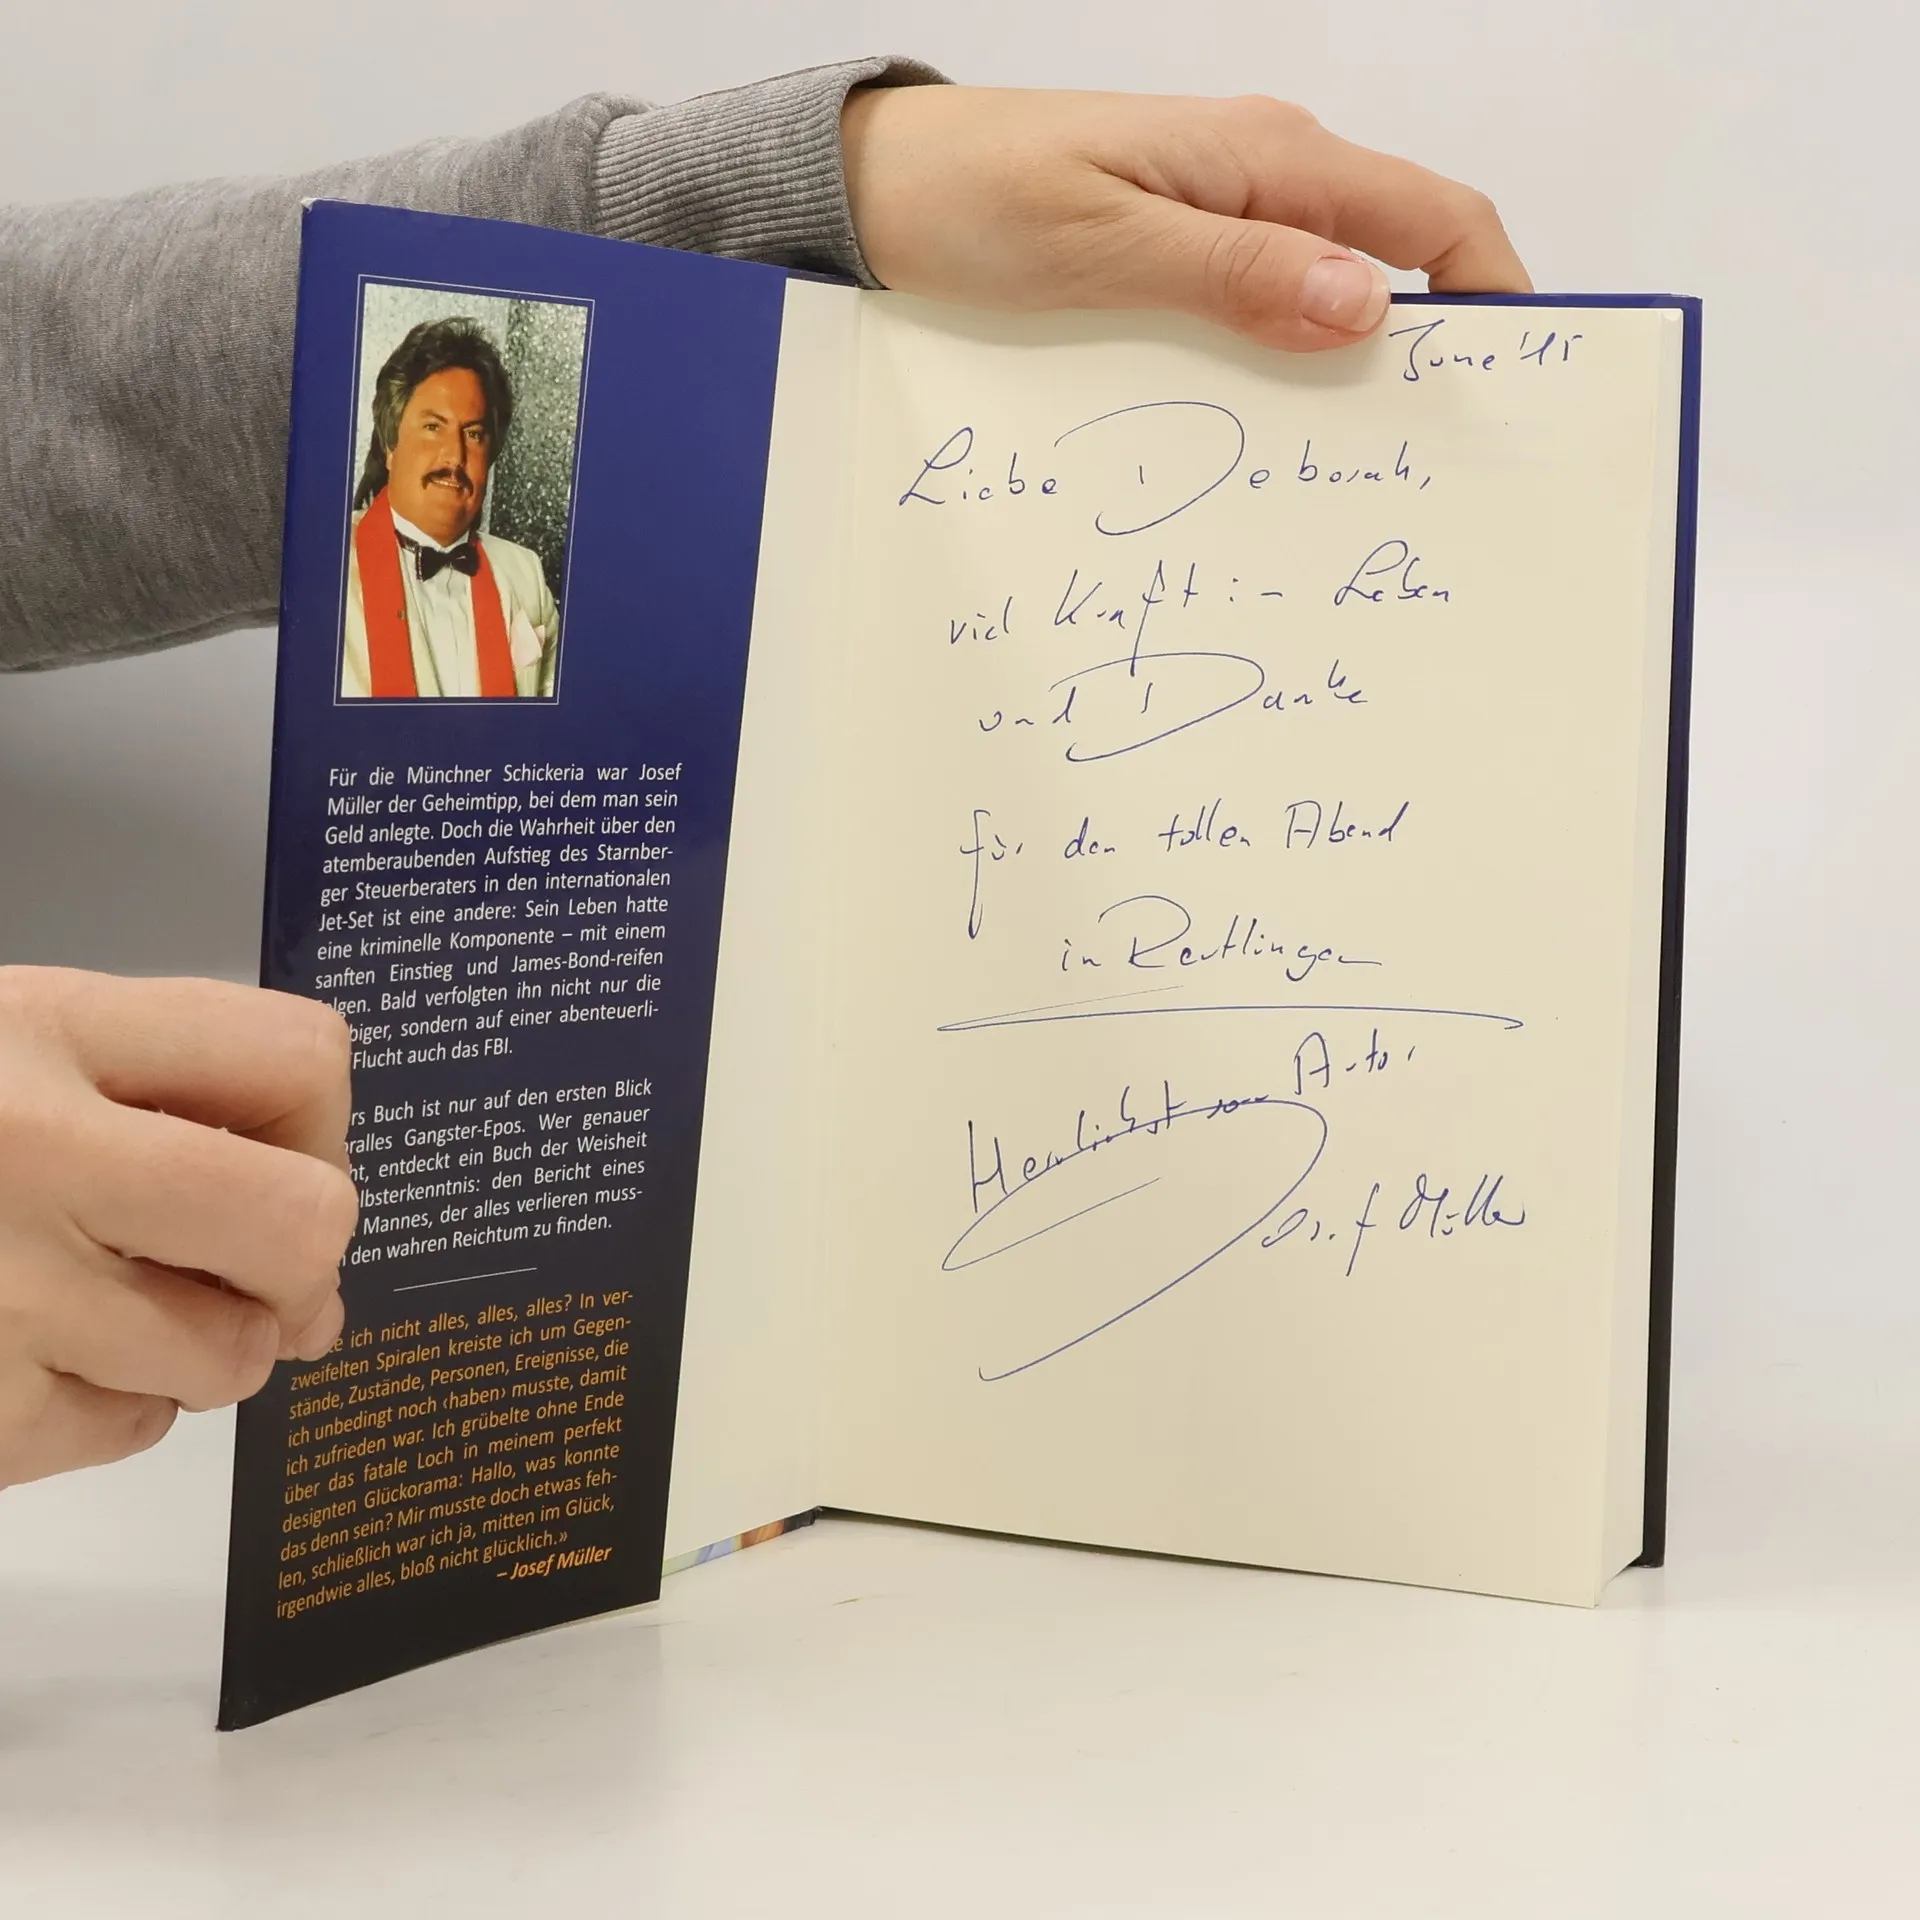 Für die Münchner Schickeria war Josef
Müller der Geheimtipp, bei dem man sein
Geld anlegte. Doch die Wahrheit über den
atemberaubenden Aufstieg des Starnber-
ger Steuerberaters in den internationalen
Jet-Set ist eine andere: Sein Leben hatte
eine kriminelle Komponente – mit einem
sanften Einstieg und James-Bond-reifen
lgen. Bald verfolgten ihn nicht nur die
biger, sondern auf einer abenteuerli-
Flucht auch das FBI.
rs Buch ist nur auf den ersten Blick
ralles Gangster-Epos. Wer genauer
ht, entdeckt ein Buch der Weisheit
lbsterkenntnis: den Bericht eines
Mannes, der alles verlieren muss-
den wahren Reichtum zu finden.
e ich nicht alles, alles, alles? In ver-
zweifelten Spiralen kreiste ich um Gegen-
stände, Zustände, Personen, Ereignisse, die
ich unbedingt noch ‹haben› musste, damit
ich zufrieden war. Ich grübelte ohne Ende
über das fatale Loch in meinem perfekt
designten Glückorama: Hallo, was konnte
das denn sein? Mir musste doch etwas feh-
len, schließlich war ich ja, mitten im Glück,
irgendwie alles, bloß nicht glücklich.»
– Josef Müller
June '15
Liebe Deborah,
viel Kraft im Leben
und Danke
für den tollen Abend
in Reutlingen
Herzlichst vom Autor
Josef Müller